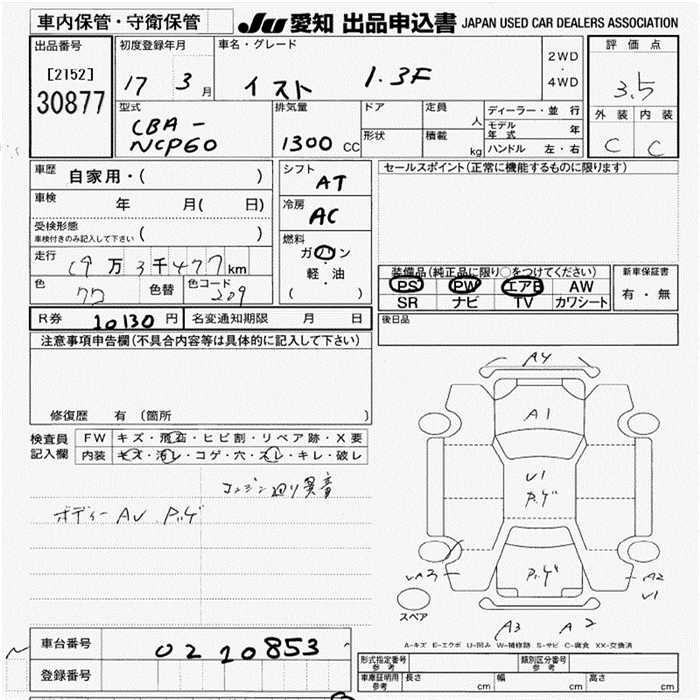 車内保管・守衛保管
JU 愛知 出品申込書 JAPAN USED CAR DEALERS ASSOCIATION
出品番号
[2152]
30877
初度登録年月
17 3月
車名・グレード
イスト 1.3F
2WD
・
4WD
評価点
3.5
外装 内装
C C
型式
CBA-
NCP60
排気量
1300 CC
ドア
形状
定員
人
積載
kg
ディーラー・並行
モデル年式 年
ハンドル 左・右
車歴
自家用・( )
車検
年 月( 日)
受検形態
車検付きのみ記入して下さい ( )
走行
19万3千477km
色
色替
色コード
209
シフト
AT
冷房
AC
燃料
ガソリン
・
軽・油
( )
セールスポイント(正常に機能するものに限ります)
装備品(純正品に限り○をつけてください)
PS PW エアB AW
SR ナビ TV カワシート
新車保証書
有・無
R券 10130円
名変通知期限 月 日
後日品
注意事項申告欄(不具合内容等は具体的に記入して下さい)
修復歴 有 (箇所 )
検査員
記入欄
FW キズ・飛石・ヒビ割・リペア跡・X要
内装 キズ・汚レ・コゲ・穴・スレ・キレ・破レ
エンジン廻り異音
ボディー AU P.ハゲ
A4
A1
U1
P.ハゲ
P.ハゲ
UA3
A2
U1
スペア
A3 A2
A-キズ E-エクボ U-凹み W-補修跡 S-サビ C-腐食 XX-交換済
車台番号 0220853
登録番号
形式指定番号
参考
類別区分番号
参考
車庫証明用
参考
長さ cm
幅 cm
高さ cm